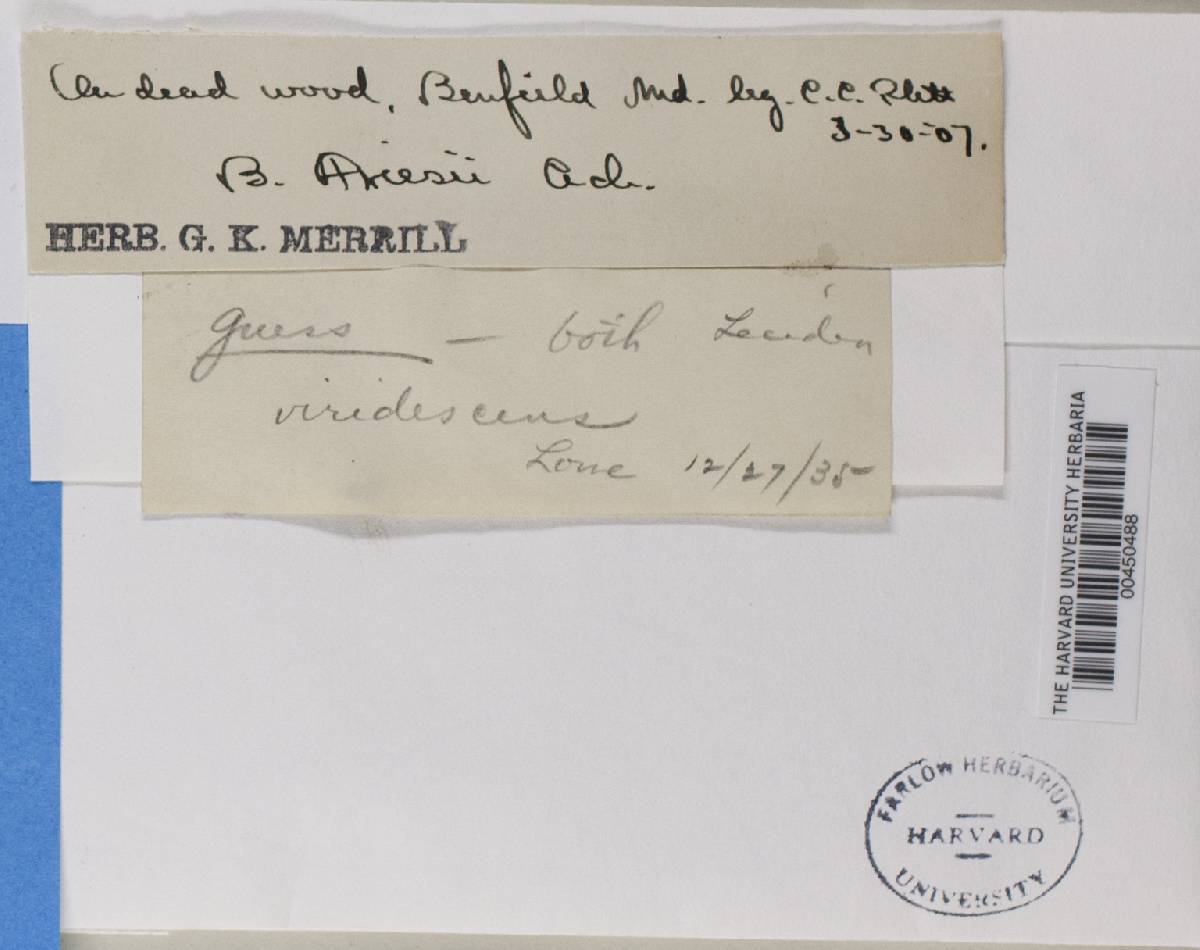 On dead wood, Benfield Md. leg. C.C. Plitt
3-30-07.
B. Friesii Ach.
HERB. G. K. MERRILL
Guess — both Lecidea
viridescens
Lowe 12/27/35
THE HARVARD UNIVERSITY HERBARIA
00450488
FARLOW HERBARIUM
HARVARD
UNIVERSITY